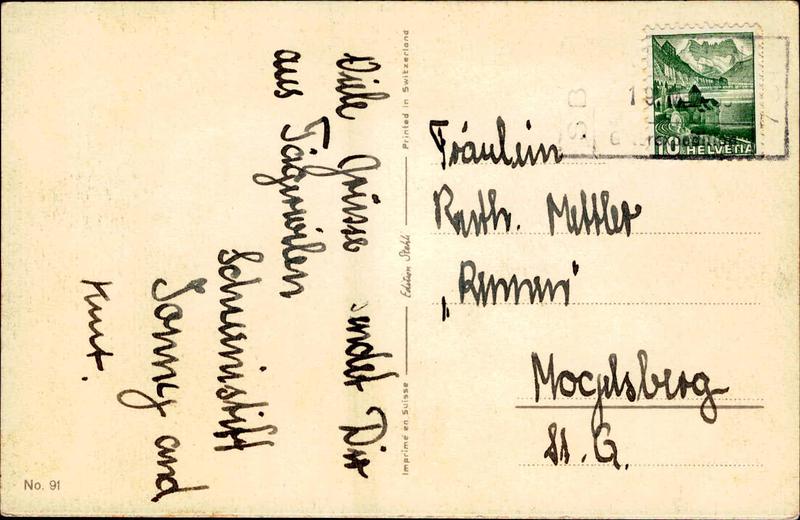 Viele Grüsse sendet Dir
aus Tägerwilen
Sonny und
Kurt.
No. 91
Printed in Switzerland
Edition Stehli
Imprimé en Suisse
10 HELVETIA
SB
Fräulein
Ruth. Mettler
Mogelsberg
St. G.